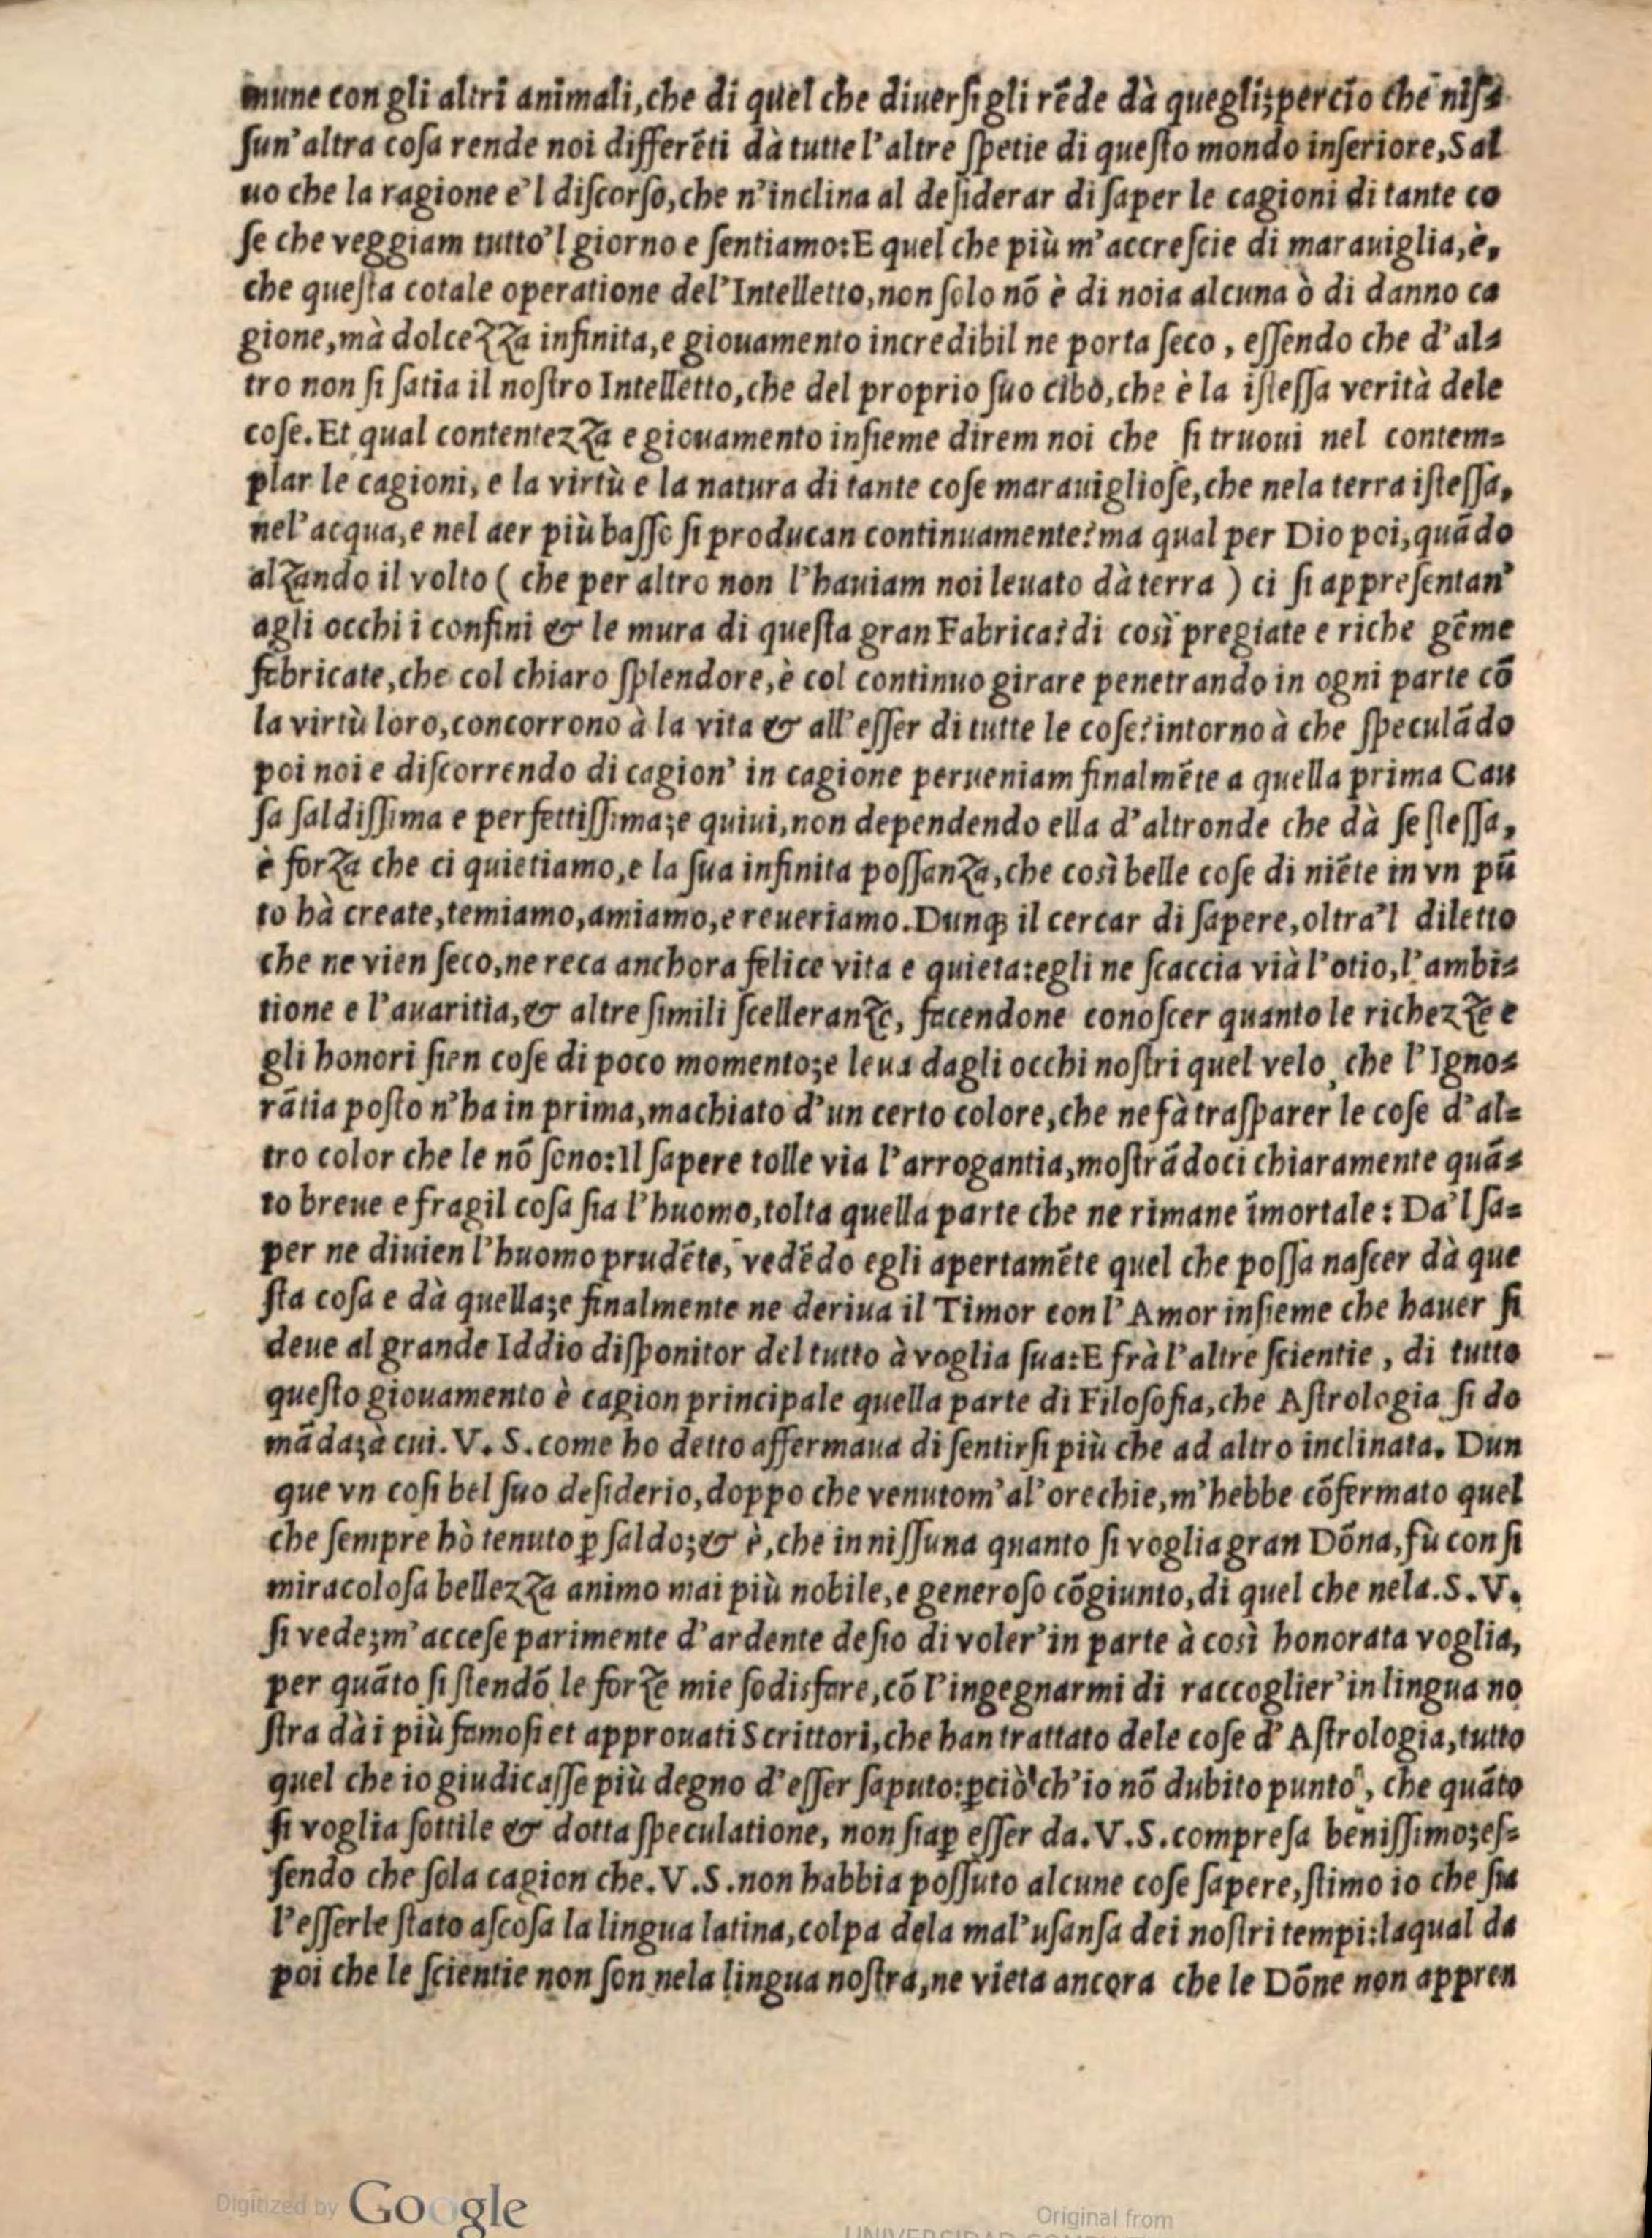 mune con gli altri animali, che di quel che diuersi gli rẽde dà quegli; percio che nis-
sun' altra cosa rende noi differẽti dà tutte l'altre spetie di questo mondo inferiore, Sal
uo che la ragione e'l discorso, che n'inclina al desiderar di saper le cagioni di tante co
se che veggiam tutto'l giorno e sentiamo: E quel che più m'accrescie di marauiglia, è,
che questa cotale operatione del'Intelletto, non solo nõ è di noia alcuna ò di danno ca
gione, mà dolcezza infinita, e giouamento incredibil ne porta seco, essendo che d'al-
tro non si satia il nostro Intelletto, che del proprio suo cibo, che è la istessa verità dele
cose. Et qual contentezza e giouamento insieme direm noi che si truoui nel contem-
plar le cagioni, e la virtù e la natura di tante cose marauigliose, che nela terra istessa,
nel'acqua, e nel aer più basso si producan continuamente? ma qual per Dio poi, quãdo
alzando il volto ( che per altro non l'hauiam noi leuato dà terra ) ci si appresentan'
agli occhi i confini & le mura di questa gran Fabrica? di così pregiate e riche gẽme
fabricate, che col chiaro splendore, è col continuo girare penetrando in ogni parte cõ
la virtù loro, concorrono à la vita & all'esser di tutte le cose? intorno à che speculãdo
poi noi e discorrendo di cagion' in cagione perueniam finalmẽte a quella prima Cau
sa saldissima e perfettissima; e quiui, non dependendo ella d'altronde che dà se stessa,
è forza che ci quietiamo, e la sua infinita possanza, che così belle cose di niẽte in vn pũ
to hà create, temiamo, amiamo, e reueriamo. Dunq; il cercar di sapere, oltra'l diletto
che ne vien seco, ne reca anchora felice vita e quieta: egli ne scaccia vià l'otio, l'ambi-
tione e l'auaritia, & altre simili scelleranze, facendone conoscer quanto le richezze e
gli honori sien cose di poco momento; e leua dagli occhi nostri quel velo, che l'Igno-
rãtia posto n'ha in prima, machiato d'un certo colore, che ne fà trasparer le cose d'al-
tro color che le nõ sono: Il sapere tolle via l'arrogantia, mostrãdoci chiaramente quã-
to breue e fragil cosa sia l'huomo, tolta quella parte che ne rimane ĩmortale: Da'l sa-
per ne diuien l'huomo prudẽte, vedẽdo egli apertamẽte quel che possa nascer dà que
sta cosa e dà quella; e finalmente ne deriua il Timor con l'Amor insieme che hauer si
deue al grande Iddio disponitor del tutto à voglia sua: E frà l'altre scientie, di tutto
questo giouamento è cagion principale quella parte di Filosofia, che Astrologia si do
mãda; à cui. V. S. come ho detto affermaua di sentirsi più che ad altro inclinata. Dun
que vn cosi bel suo desiderio, doppo che venutom'al'orechie, m'hebbe cõfermato quel
che sempre hò tenuto ꝑ saldo; & è, che in nissuna quanto si voglia gran Dõna, fù con si
miracolosa bellezza animo mai più nobile, e generoso cõgiunto, di quel che nela. S. V.
si vede; m'accese parimente d'ardente desio di voler' in parte à così honorata voglia,
per quãto si stendõ le forze mie sodisfare, cõ l'ingegnarmi di raccoglier' in lingua no
stra dà i più famosi et approuati Scrittori, che han trattato dele cose d'Astrologia, tutto
quel che io giudicasse più degno d'esser saputo: ꝑciò ch'io nõ dubito punto, che quãto
si voglia sottile & dotta speculatione, non sia ꝑ esser da. V. S. compresa benissimo; es-
sendo che sola cagion che. V. S. non habbia possuto alcune cose sapere, stimo io che sia
l'esserle stato ascosa la lingua latina, colpa dela mal'usansa dei nostri tempi: laqual da
poi che le scientie non son nela lingua nostra, ne vieta ancora che le Dõne non appren
Digitized by Google
Original from